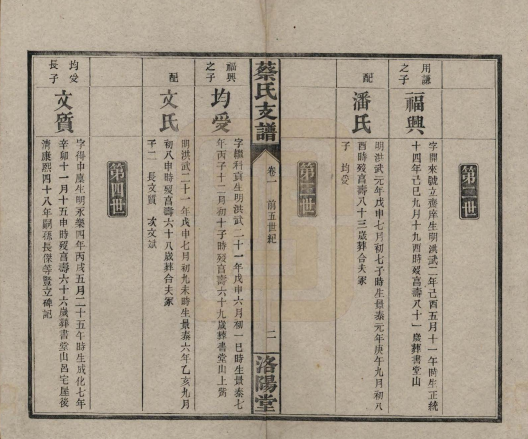 第二世
用謙之子
福興
字開來號立齋庠生明洪武二年己酉五月十一午時生正統
十四年己巳九月十九酉時歿享壽八十一歲葬書堂山
配
潘氏
明洪武元年戊申七月初七子時生景泰元年庚午九月初八
酉時歿享壽八十三歲葬合夫冢
子 均受
第三世
蔡氏支譜
卷一 前五世紀
二
洛陽堂
福興之子
均受
字繼科貢生明洪武二十一年戊申六月初一巳時生景泰七
年丙子十二月初十子時歿享壽六十九歲葬書堂山上
配
文氏
明洪武二十一年戊申七月初九未時生景泰六年乙亥九月
初八申時歿享壽六十八歲葬合夫冢
子二 長文質 次文斌
第四世
均受長子
文質
字得中庠生明永樂四年丙戌五月二十五午時生成化七年
辛卯十一月十五申時歿享壽六十六歲葬書堂山呂宅屋後
清康熙四十八年嗣孫長保等豎立碑記